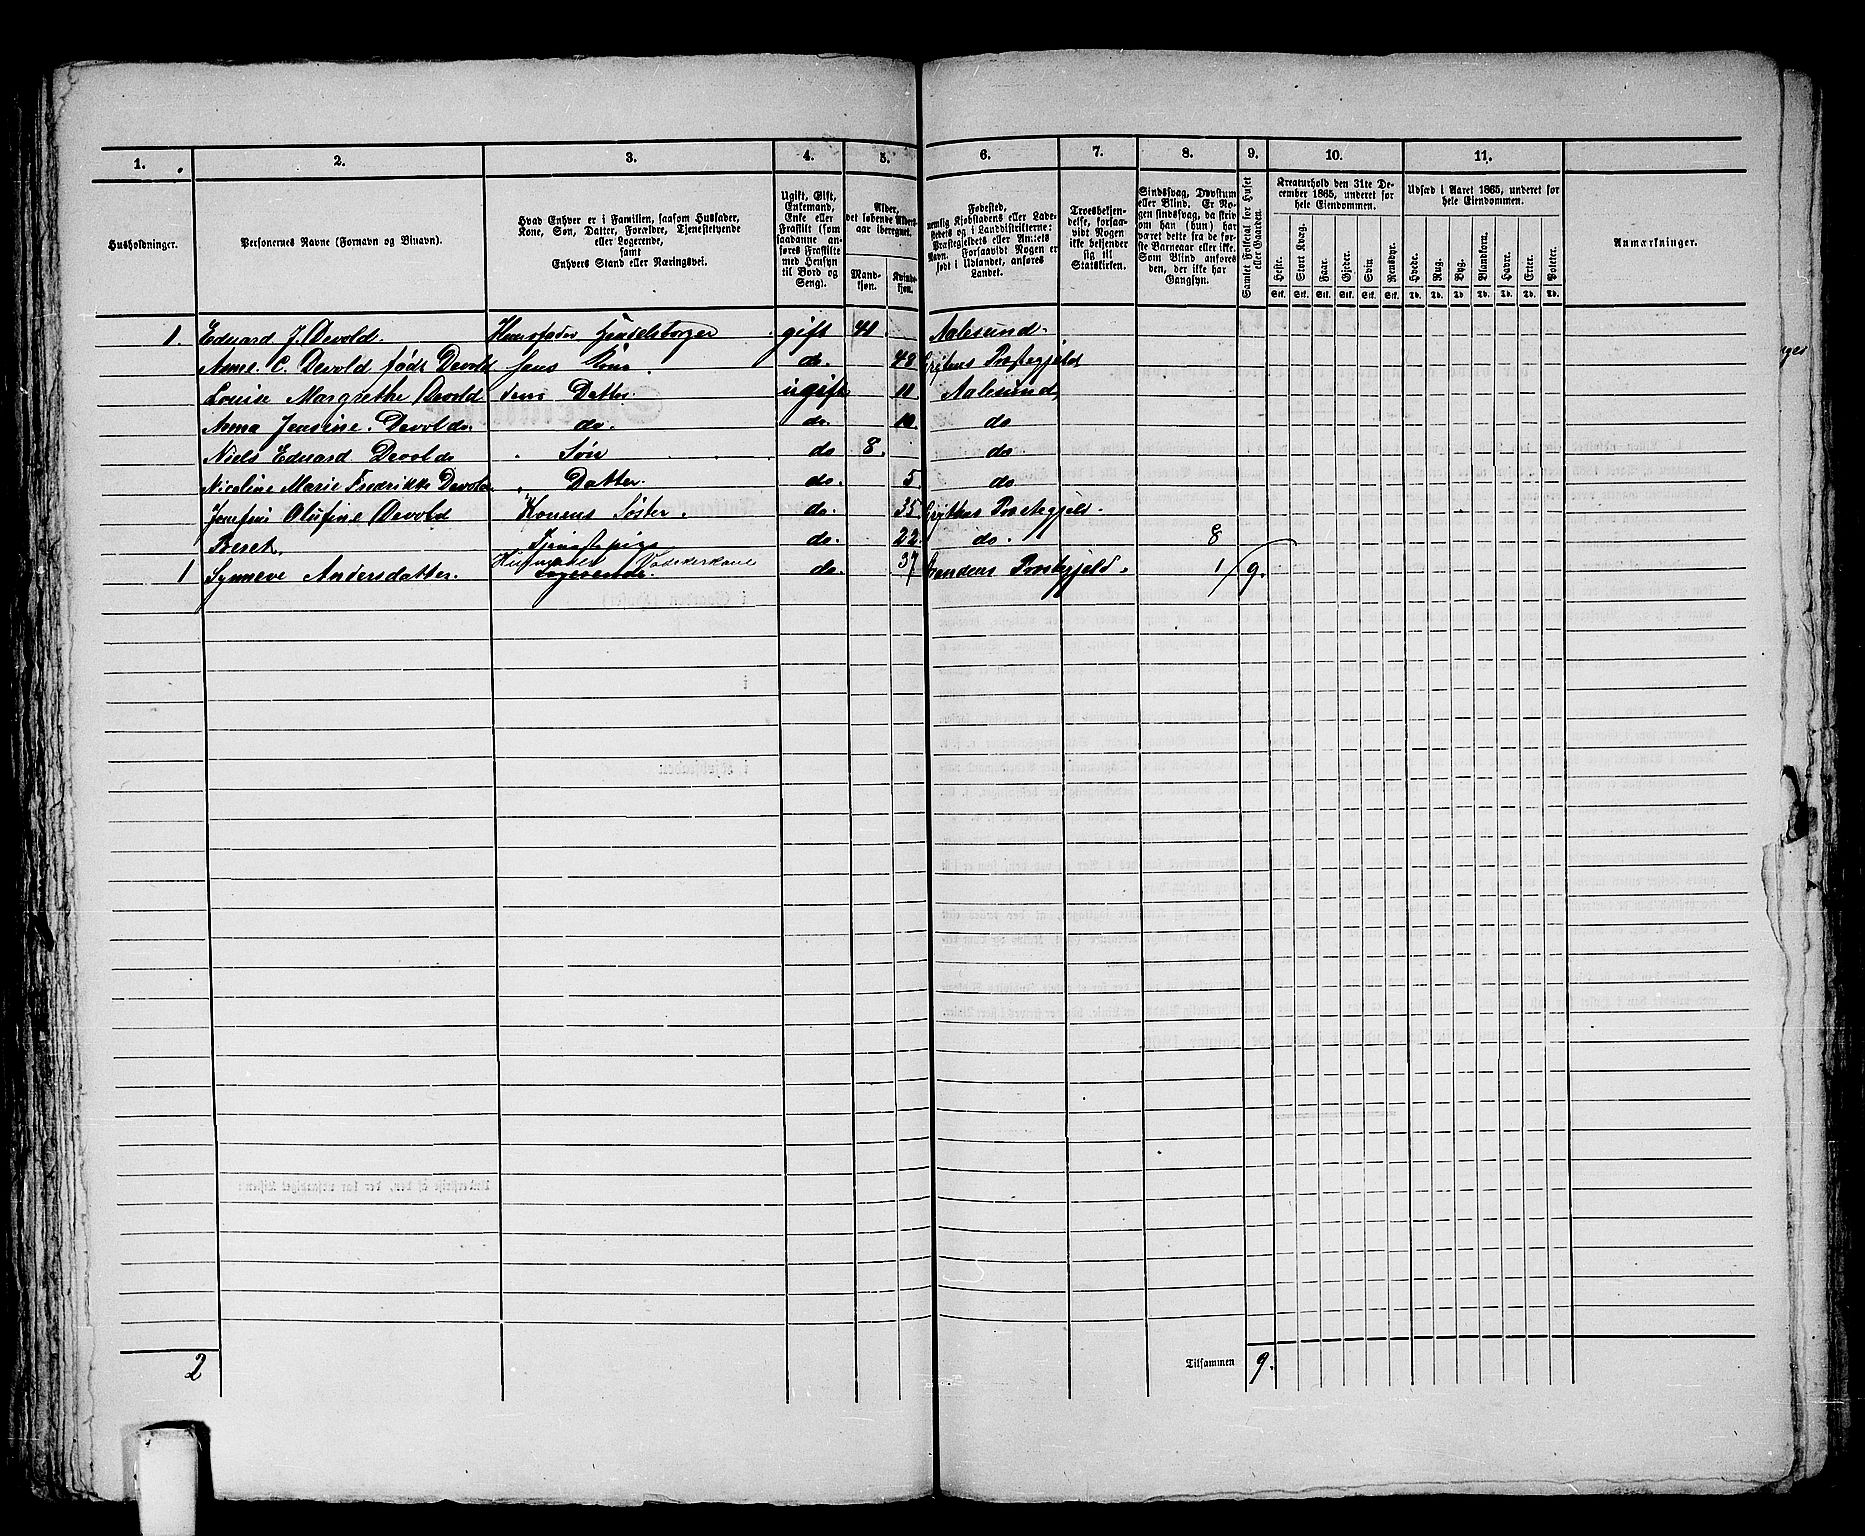 1. 2. 3. 4. 5. 6. 7. 8. 9. 10. 11.
Husholdninger.
Personernes Navne (Fornavn og Binavn).
Hvad Enhver er i Familien, saasom Husfader, Kone, Søn, Datter, Forældre, Tjenestetyende eller Logerende, samt Enhvers Stand eller Næringsvei.
Ugift, Gift, Enkemand, Enke eller Fraskilt (som saadanne anføres Fraskilte med Hensyn til Bord og Seng).
Alder, det løbende Alders-aar iberegnet.
Mand-kjøn. Kvinde-kjøn.
Fødested, nemlig Kjøbstadens eller Ladestedets og i Landdistrikterne: Præstegjeldets eller Annexets Navn. Forsaavidt Nogen er født i Udlandet, anføres Landet.
Troesbekjendelse, forsaavidt Nogen ikke bekjender sig til Statskirken.
Sindssvag, Døvstum eller Blind. Er Nogen sindssvag, da skrives om han (hun) har været dette fra de første Barneaar eller ikke. Som Blind anføres den, der ikke har Gangsyn.
Samlet Folketal for Huset eller Gaarden.
Kreaturhold den 31te December 1865, underet for hele Eiendommen.
Heste. Stort Kvæg. Faar. Gjeder. Svin. Rensdyr.
Stk. Stk. Stk. Stk. Stk. Stk.
Udsæd i Aaret 1865, underet for hele Eiendommen.
Hvede. Rug. Byg. Blandkorn. Havre. Erter. Poteter.
Td. Td. Td. Td. Td. Td. Td.
Anmærkninger.
1. Eduard J. Devold. Huusfader Handelsborger gift 41 Aalesund.
Anne. C. Devold født Devold hans Kone do. 48 Grytens Præstegjeld
Louise Margrethe Devold deres Datter ugift 11 Aalesund
Anna Jensine. Devold. do. do. 10 do
Niels Eduard Devold. " Søn do 8. do
Nicoline Marie Fredrikke Devold " Datter. do. 5. do
Olufine Devold Konens Søster. do. 35 Grytens Præstegjeld.
Beret. Tjenestepige do. 22 do. 8
1 Synneve Andersdatter. Logerende. do. 37 Præstegjeld. 1/9.
2
Tilsammen 9.